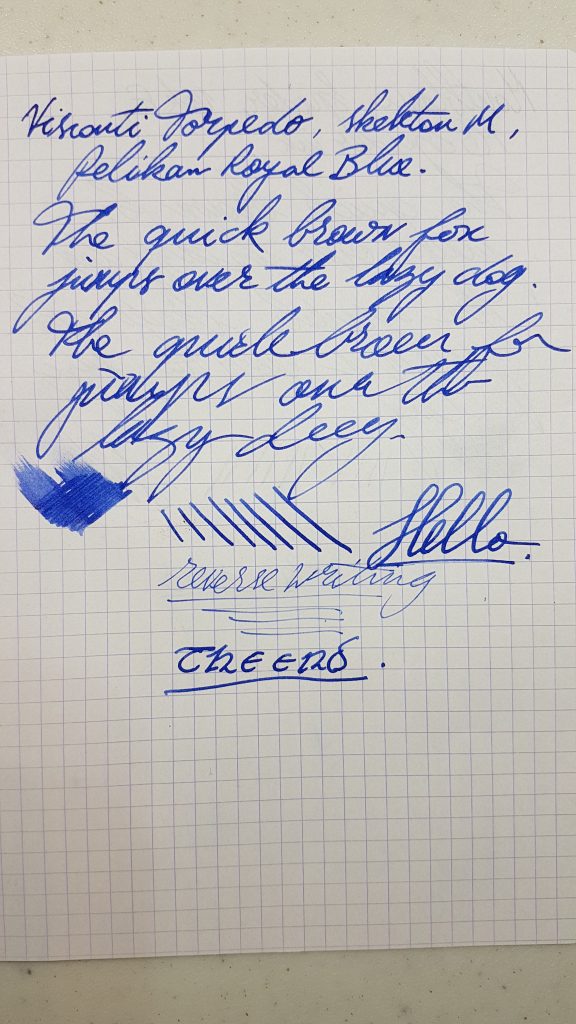 Visconti Torpedo, Skeleton M,
Pelikan Royal Blue.
The quick brown fox
jumps over the lazy dog.
The quick brown fox
jumps over the
lazy dog.
Hello.
reverse writing
The End.